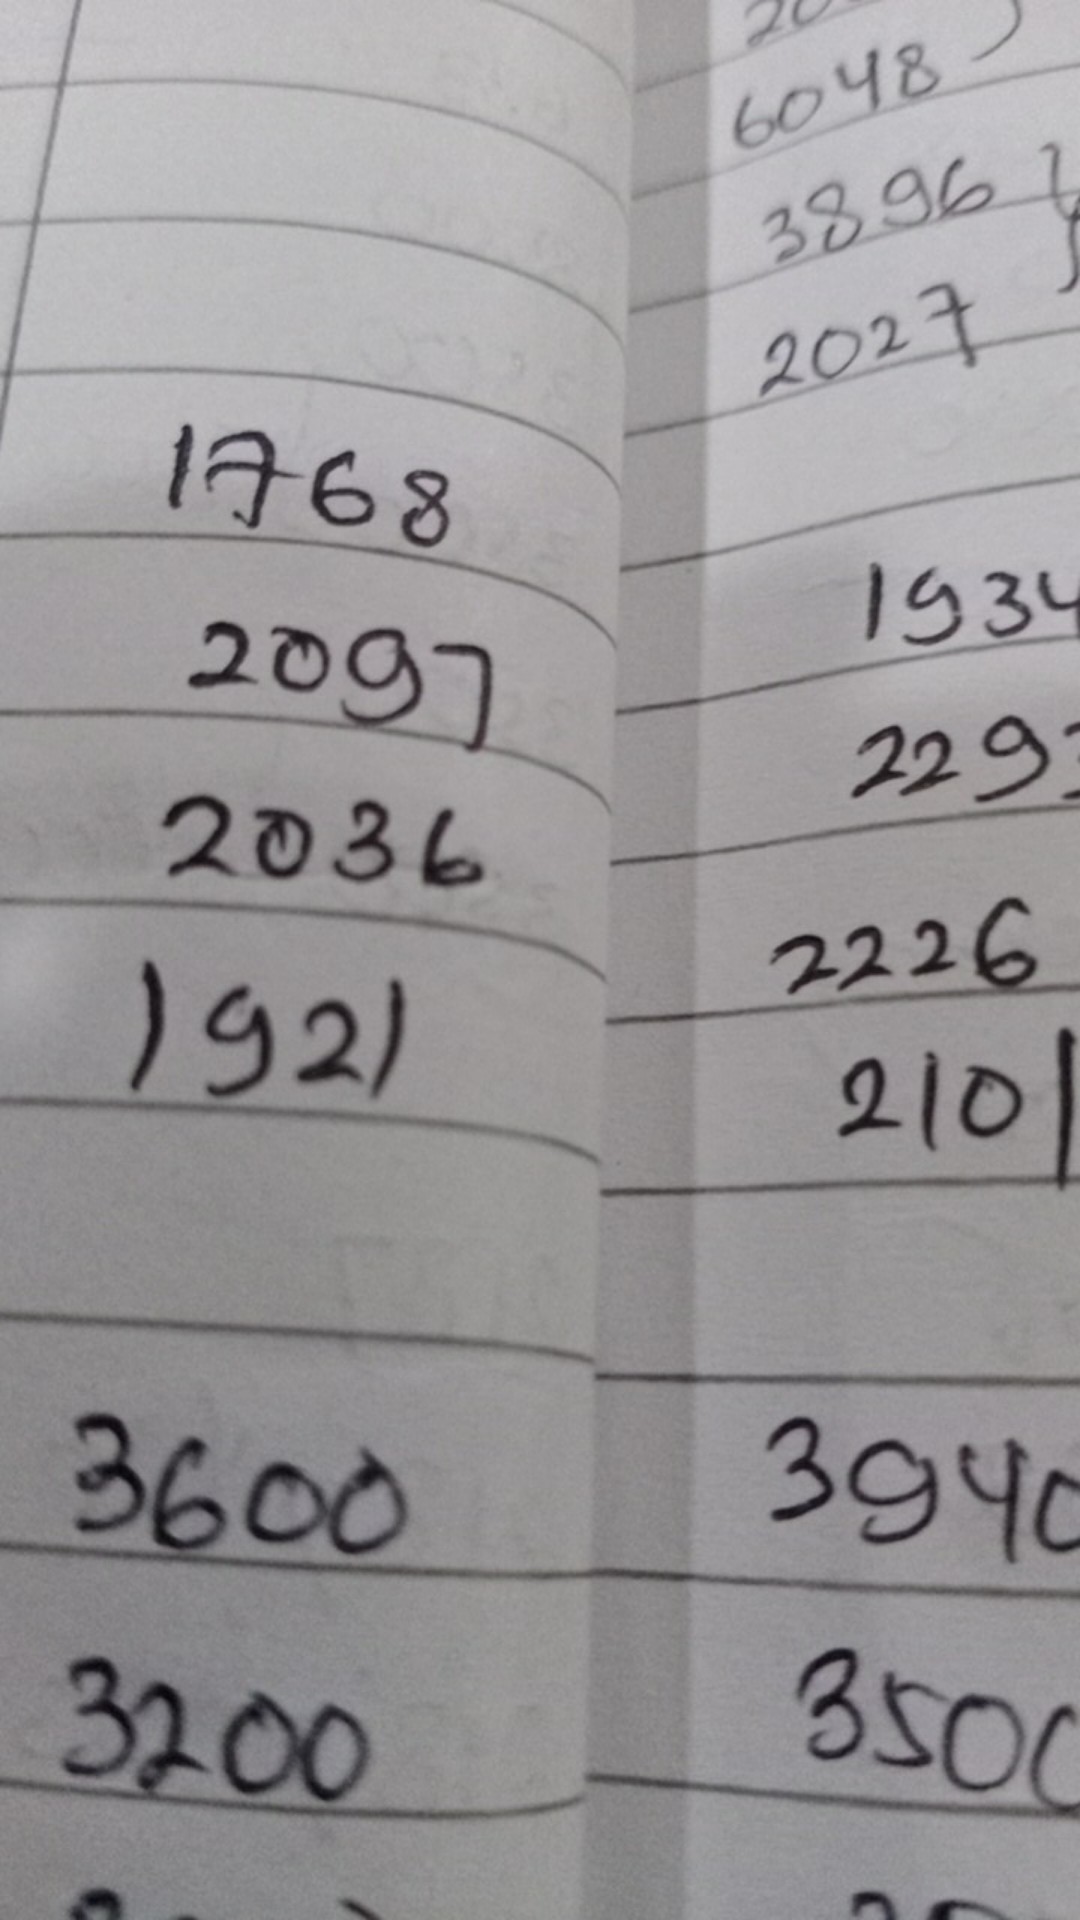 1768
2097
2036
1921
3600
3200
6048
3896
2027
1934
2293
2226
2101
3940
3500